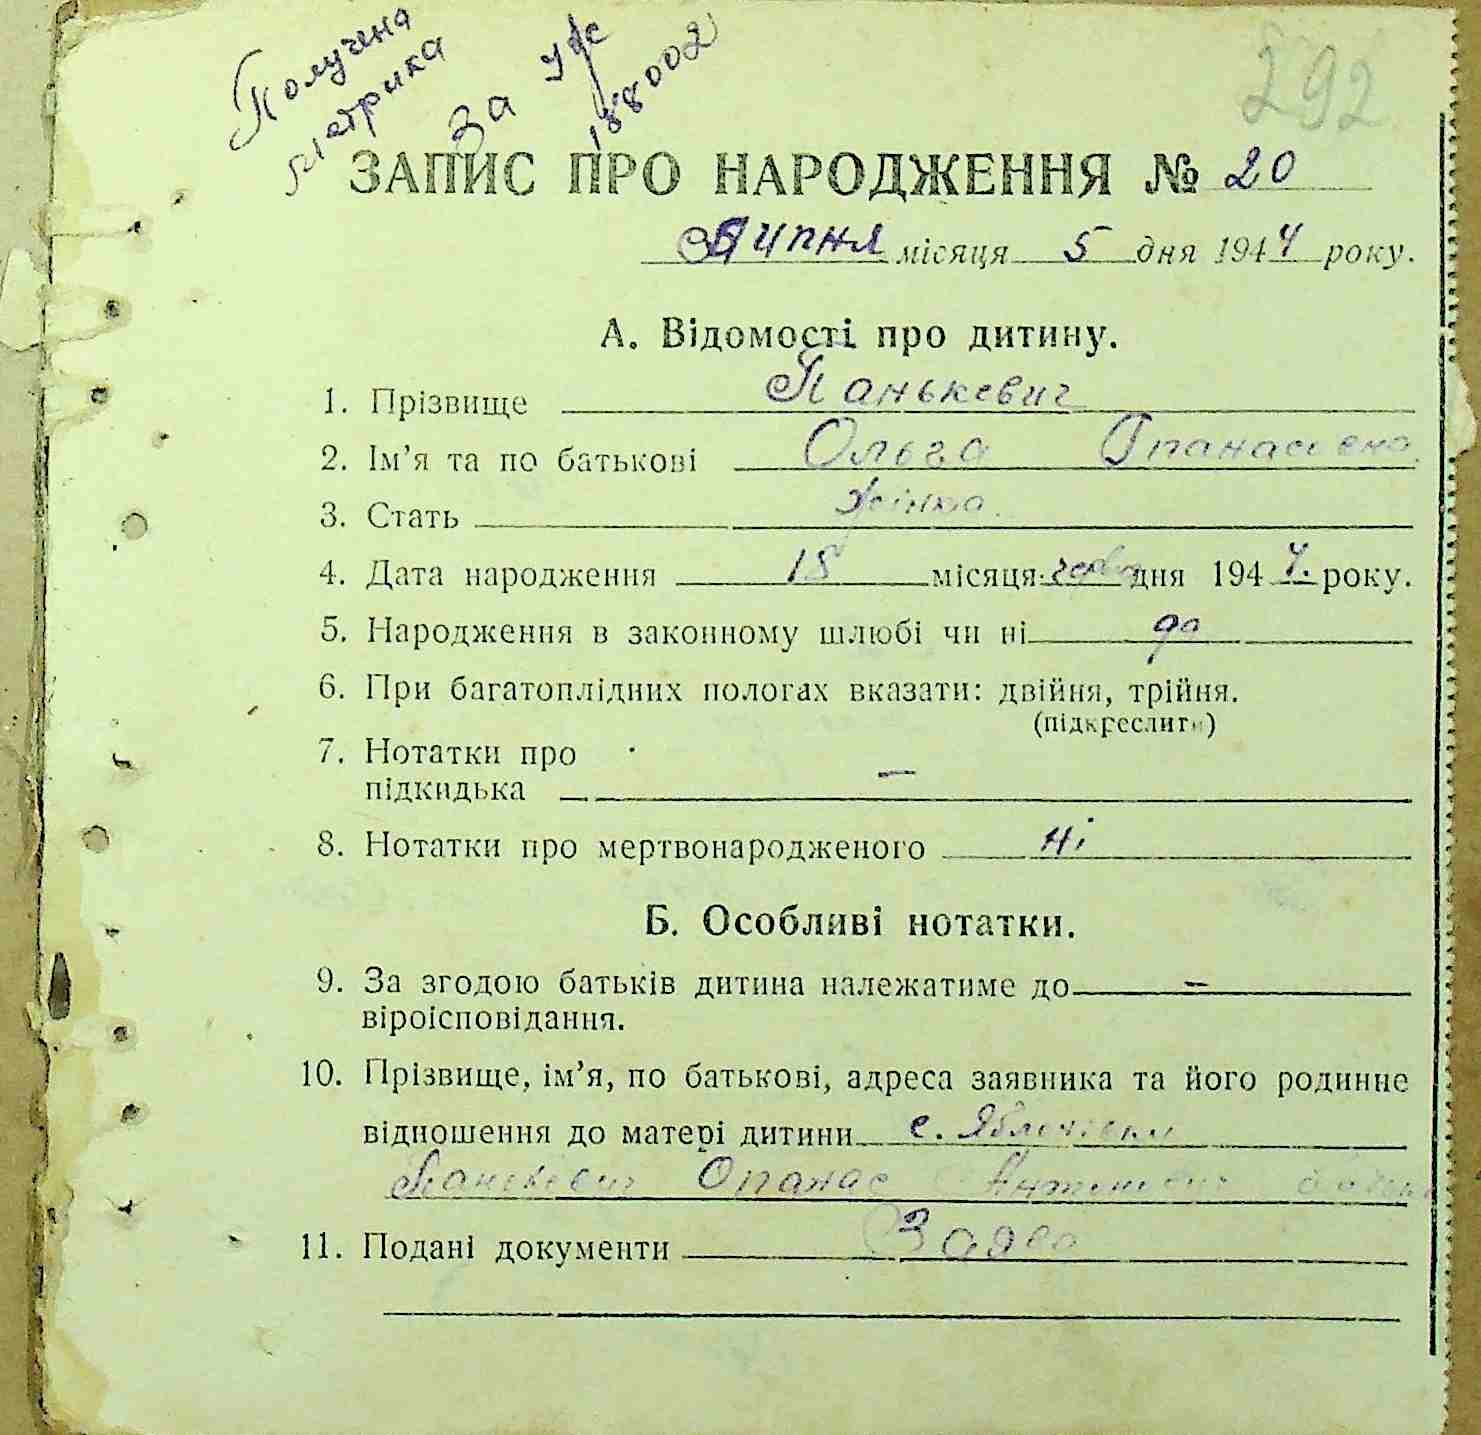 Получена
метрика
за УФС
188002
292
ЗАПИС ПРО НАРОДЖЕННЯ № 20
Липня місяця 5 дня 1944 року.
А. Відомості про дитину.
1. Прізвище Панькевич
2. Ім’я та по батькові Ольга Опанасівна
3. Стать жінка
4. Дата народження 15 місяця червня дня 1944 року.
5. Народження в законному шлюбі чи ні да
6. При багатоплідних пологах вказати: двійня, трійня.
(підкреслити)
7. Нотатки про
підкидька —
8. Нотатки про мертвонародженого ні
Б. Особливі нотатки.
9. За згодою батьків дитина належатиме до —
віроісповідання.
10. Прізвище, ім’я, по батькові, адреса заявника та його родинне
відношення до матері дитини с. Яблунівка
Панькевич Опанас Антонович
11. Подані документи Заява